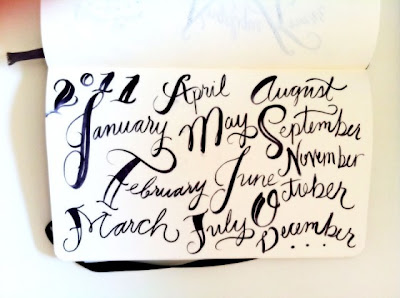 2011 April August
January May September
November
February June October
March July December